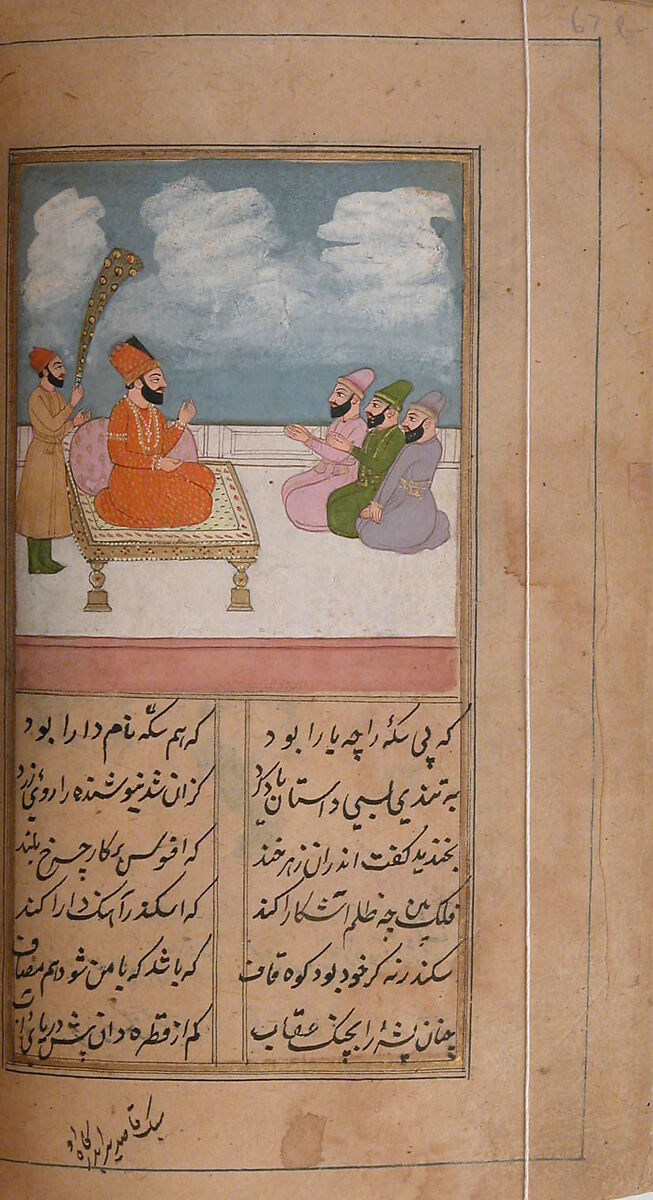 67
که پی سکهٔ را چه یارا بود که هم سکّه نام دارا بود
به تندی بسی داستان یاد کرد کزان شد نیوشنده را روی زرد
بخندید گفت اندران زهر خند که افسوس بر کار چرخ بلند
فلک بین چه ظلم آشکارا کند که اسکندر آهنگ دارا کند
سکندر نه گر خود بود کوه قاف که باشد که با من شود هم مصاف
چنان پشهٔ را بچنگ عقاب کم از قطره دان پیش دریای آب
سبک قاصد